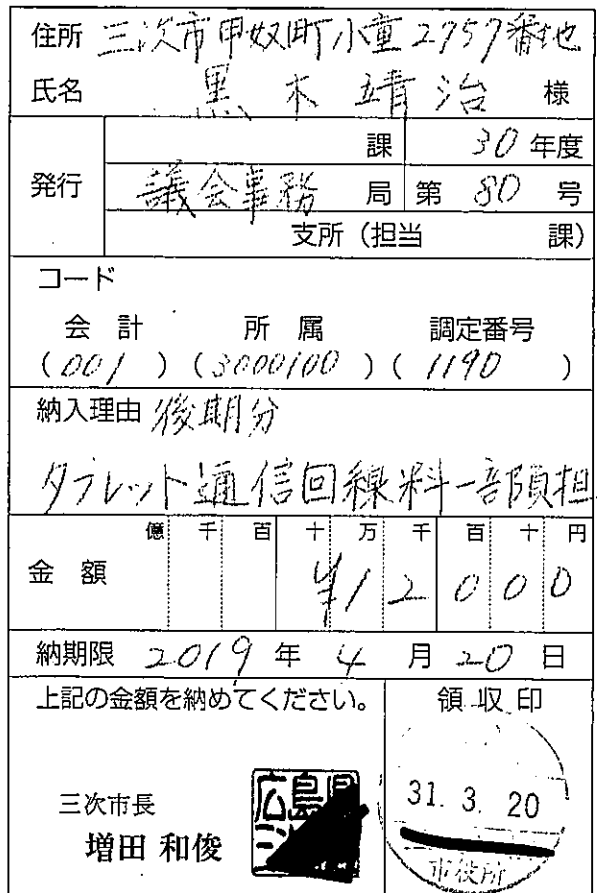 住所 三次市甲奴町小童2957番地
氏名 黒木靖治 様
発行
課 30年度
議会事務局 第80号
支所(担当 課)
コード
会計 所属 調定番号
(001) (3000100) (1190)
納入理由 後期分
タブレット通信回線料一部負担
億 千 百 十 万 千 百 十 円
金額 ¥12000
納期限 2019年4月20日
上記の金額を納めてください。
領収印
三次市長
増田 和俊
広島県
31. 3. 20
市役所